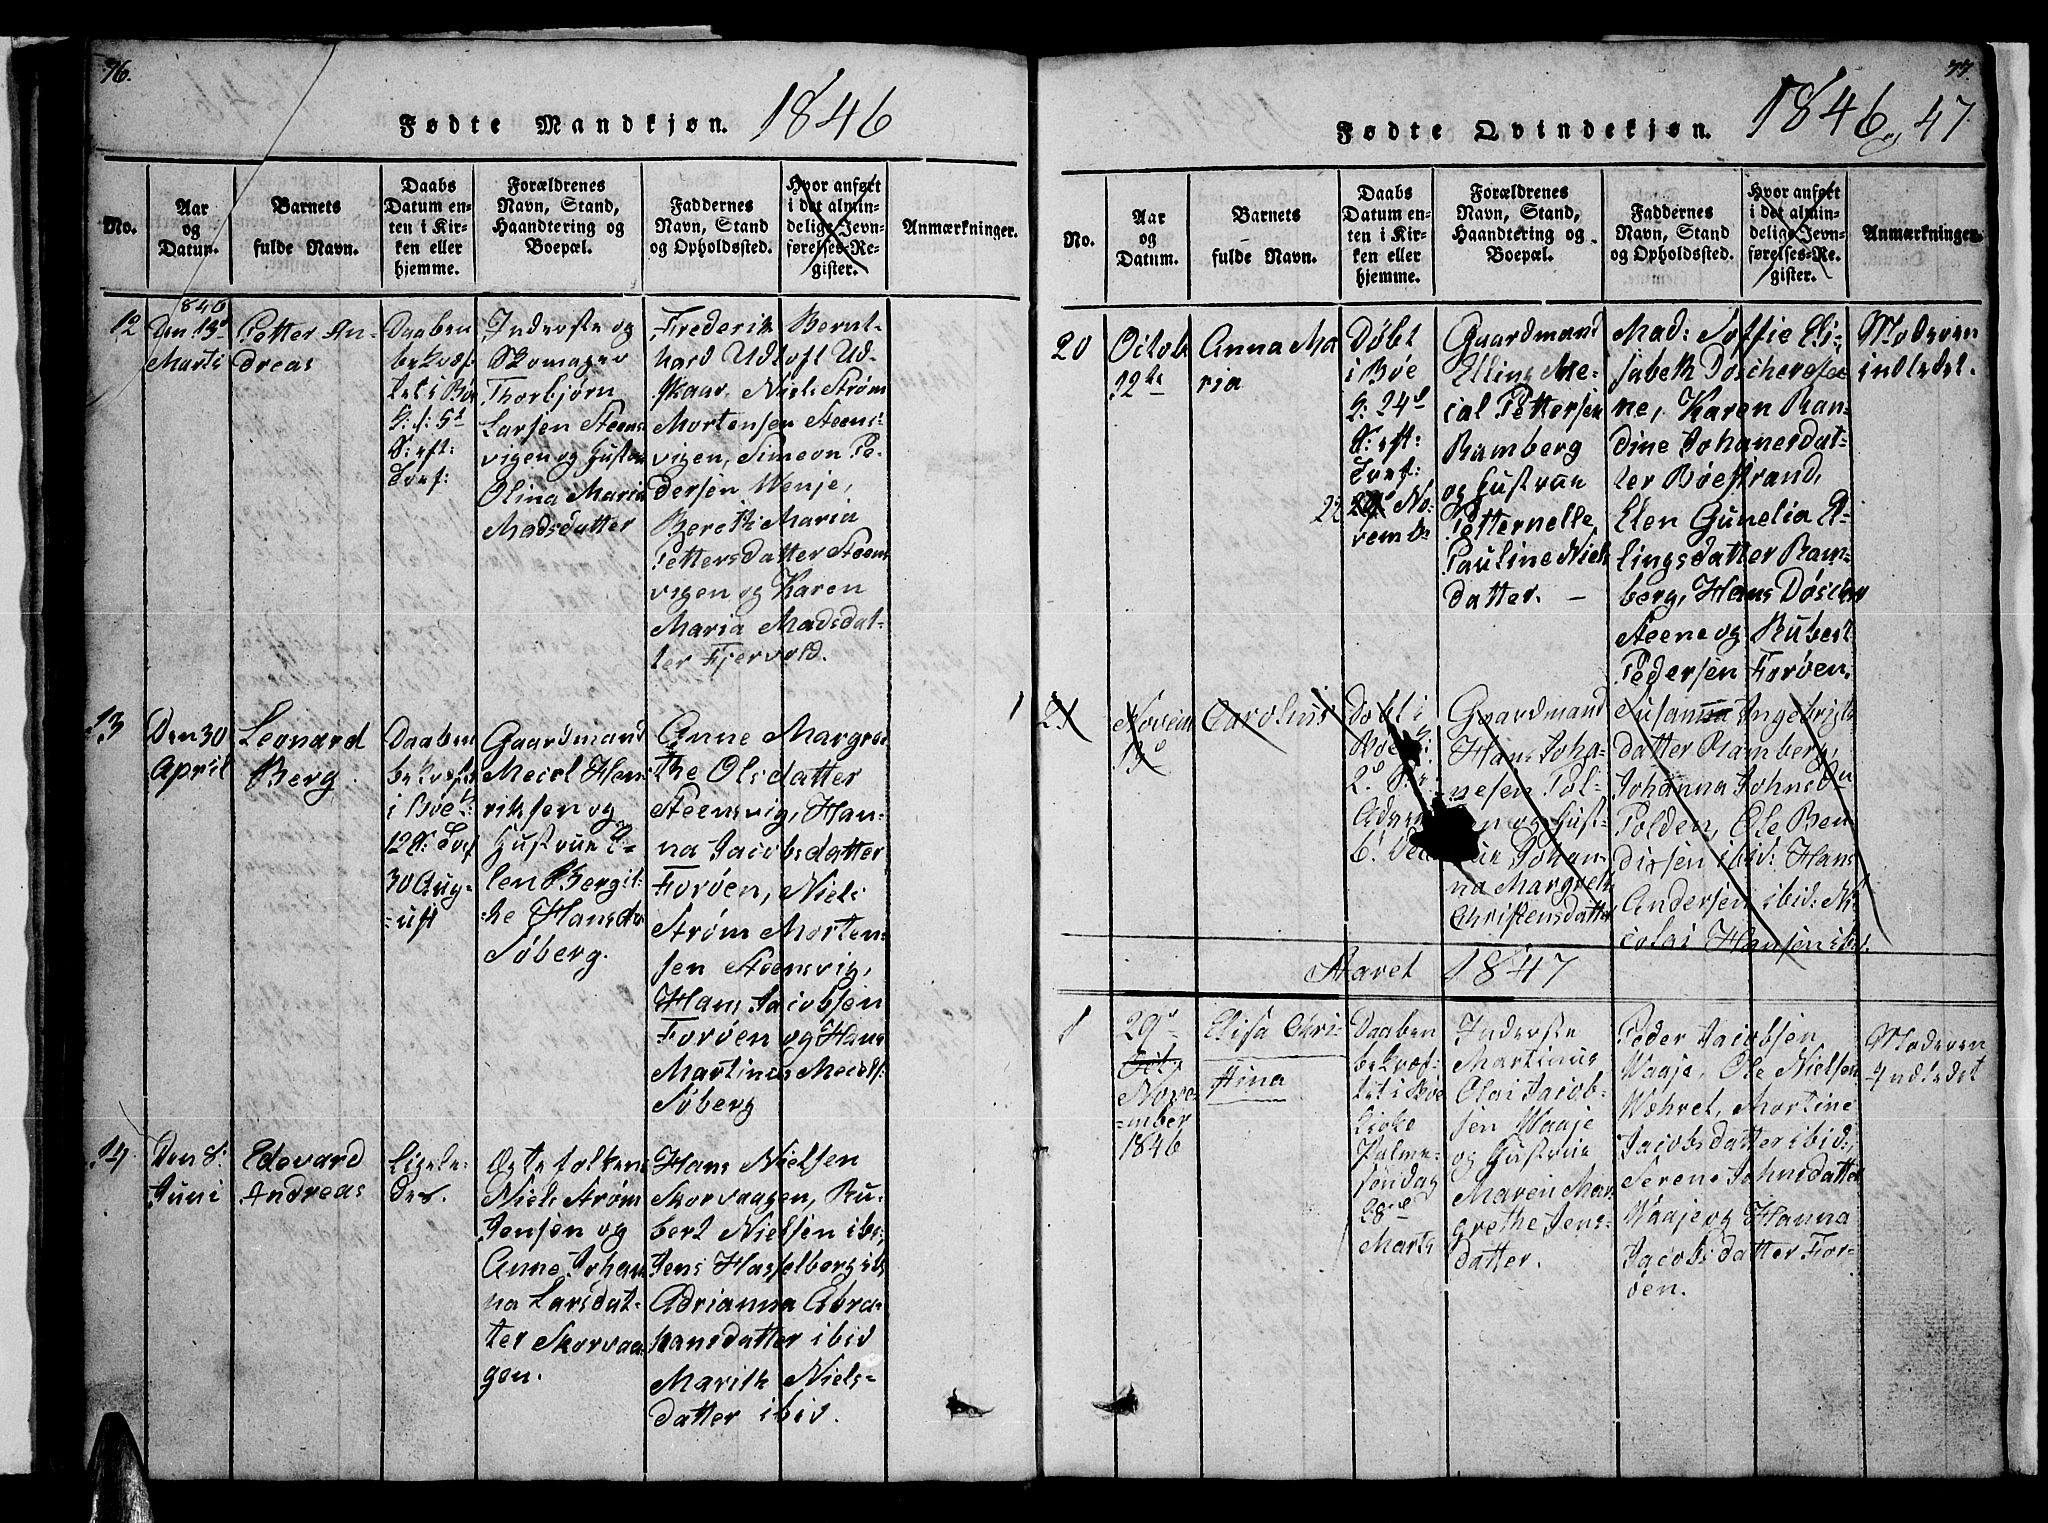 76.
Fødte Mandkjøn. 1846
No.
Aar
og
Datum.
Barnets
fulde Navn.
Daabs
Datum en-
ten i Kir-
ken eller
hjemme.
Forældrenes
Navn, Stand,
Haandtering og
Boepæl.
Faddernes
Navn, Stand
og Opholdssted.
Hvor anført
i det almin-
delige Jevn-
førelses-Re-
gister.
Anmærkninger.
12
846
Den 13de
Marts
Petter An-
dreas
Daaben
bekræf-
tet i Bøe
S: eft:
Inderste og
Skomager
Thorbjørn
Larsen Steens
vigen og Hustru
Olina Maria
Madsdatter
Frederik Bernt-
hard Udtoft Ud-
skaar, Niels Strøm
Mortensen Steens-
vigen, Simeon Pe-
dersen Wenje,
Bereth Maria
Pettersdatter Steens
vigen og Karen
Maria Madsdat-
ter Fjervold.
13
Den 30
April
Leonard
Berg.
Daaben
bekræft
i Bøe
12 S: Tref
30 Aug-
-ust
Gaardmand
Meiel Hen
riksen og
Hustrue E-
len Bergit-
he Hansdr
Søberg.
Anne Margre
the Olsdatter
Steensvig, Han-
na Jacobsdatter
Forøen, Niels
Strøm Morten-
sen Steensvig,
Hans Jacobsen
Forøen og Hans
Martinus Meiels:
Søberg
14
Den 8:
Juni
Edevard
Andreas
Ligele-
des.
Ægtefolkene
Niels Strøm
Jensen og
Anne Johan
na Larsdat-
ter Skorvaa-
gen.
Hans Nielsen
Skorvaagen, Ru-
bert Nielsen ibi:
Jens Hasselberg ibi
Adrianna Abra-
hansdatter ibid
Marith Niels-
datter ibid.
77.
Fødte Qvindekjøn. 1846 og 47
No.
Aar
og
Datum.
Barnets
fulde Navn.
Daabs
Datum en-
ten i Kir-
ken eller
hjemme.
Forældrenes
Navn, Stand,
Haandtering og
Boepæl.
Faddernes
Navn, Stand
og Opholdssted.
Hvor anført
i det almin-
delige Jevn-
førelses-Re-
gister.
Anmærkninger.
20
Octob
12te
Anna Ma
ria
Døbt
i Bøe
S: eft:
Tref:
22 No-
vembr
Gaardmand
Elling Me-
ical Pettersen
Ramberg
og Hustrue
Petternelle
Pauline Niels
datter. –
Mad: Soffie Eli-
sabeth Døscher Stee
ne, Karen Ran-
dine Johanesdat-
ter Bøestrand,
Elen Gunelia El-
lingsdatter Ram-
berg, Hans Døscher
Steene og Rubert
Pedersen Forøen.
Moderen
indledet.
21
Novem
13d
Carolius
Døbt i
Bøe
2d S: i
Adven
6t Dec
Gaardmand
Hans Joha-
nesen Pol-
og Hust-
rue Johan-
na Margreth
Christensdatter
Susanna Ingebrigts
datter Ramberg,
Johanna Johnsdr
Polden, Ole Ben-
dixsen ibid: Hans
Andersen ibid: Ni-
colai Hansen ibid.
Aaret 1847
1
29d
Oct
Nove-
-mber
1846
Elisa Chri-
stina
Daaben
bekræf-
tet i Bøe
Kirke
Palme-
søndag
28de
Marts
Inderste
Martinus
Olai Jacob-
sen Waaje
og Hustrue
Maren Mar
grethe Jens-
datter.
Peder Jacobsen
Waaje, Ole Nielsen
Wæhret, Martine
Jacobsdatter ibid,
Serene Johnsdatter
Waaje og Hanna
Jacobsdatter For-
øen.
Moderen
Indledet